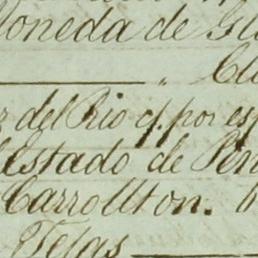 Moneda de Gu
„ Cu
z del Rio cf. por es
Estado de Pen
Carrollton.
Tejas